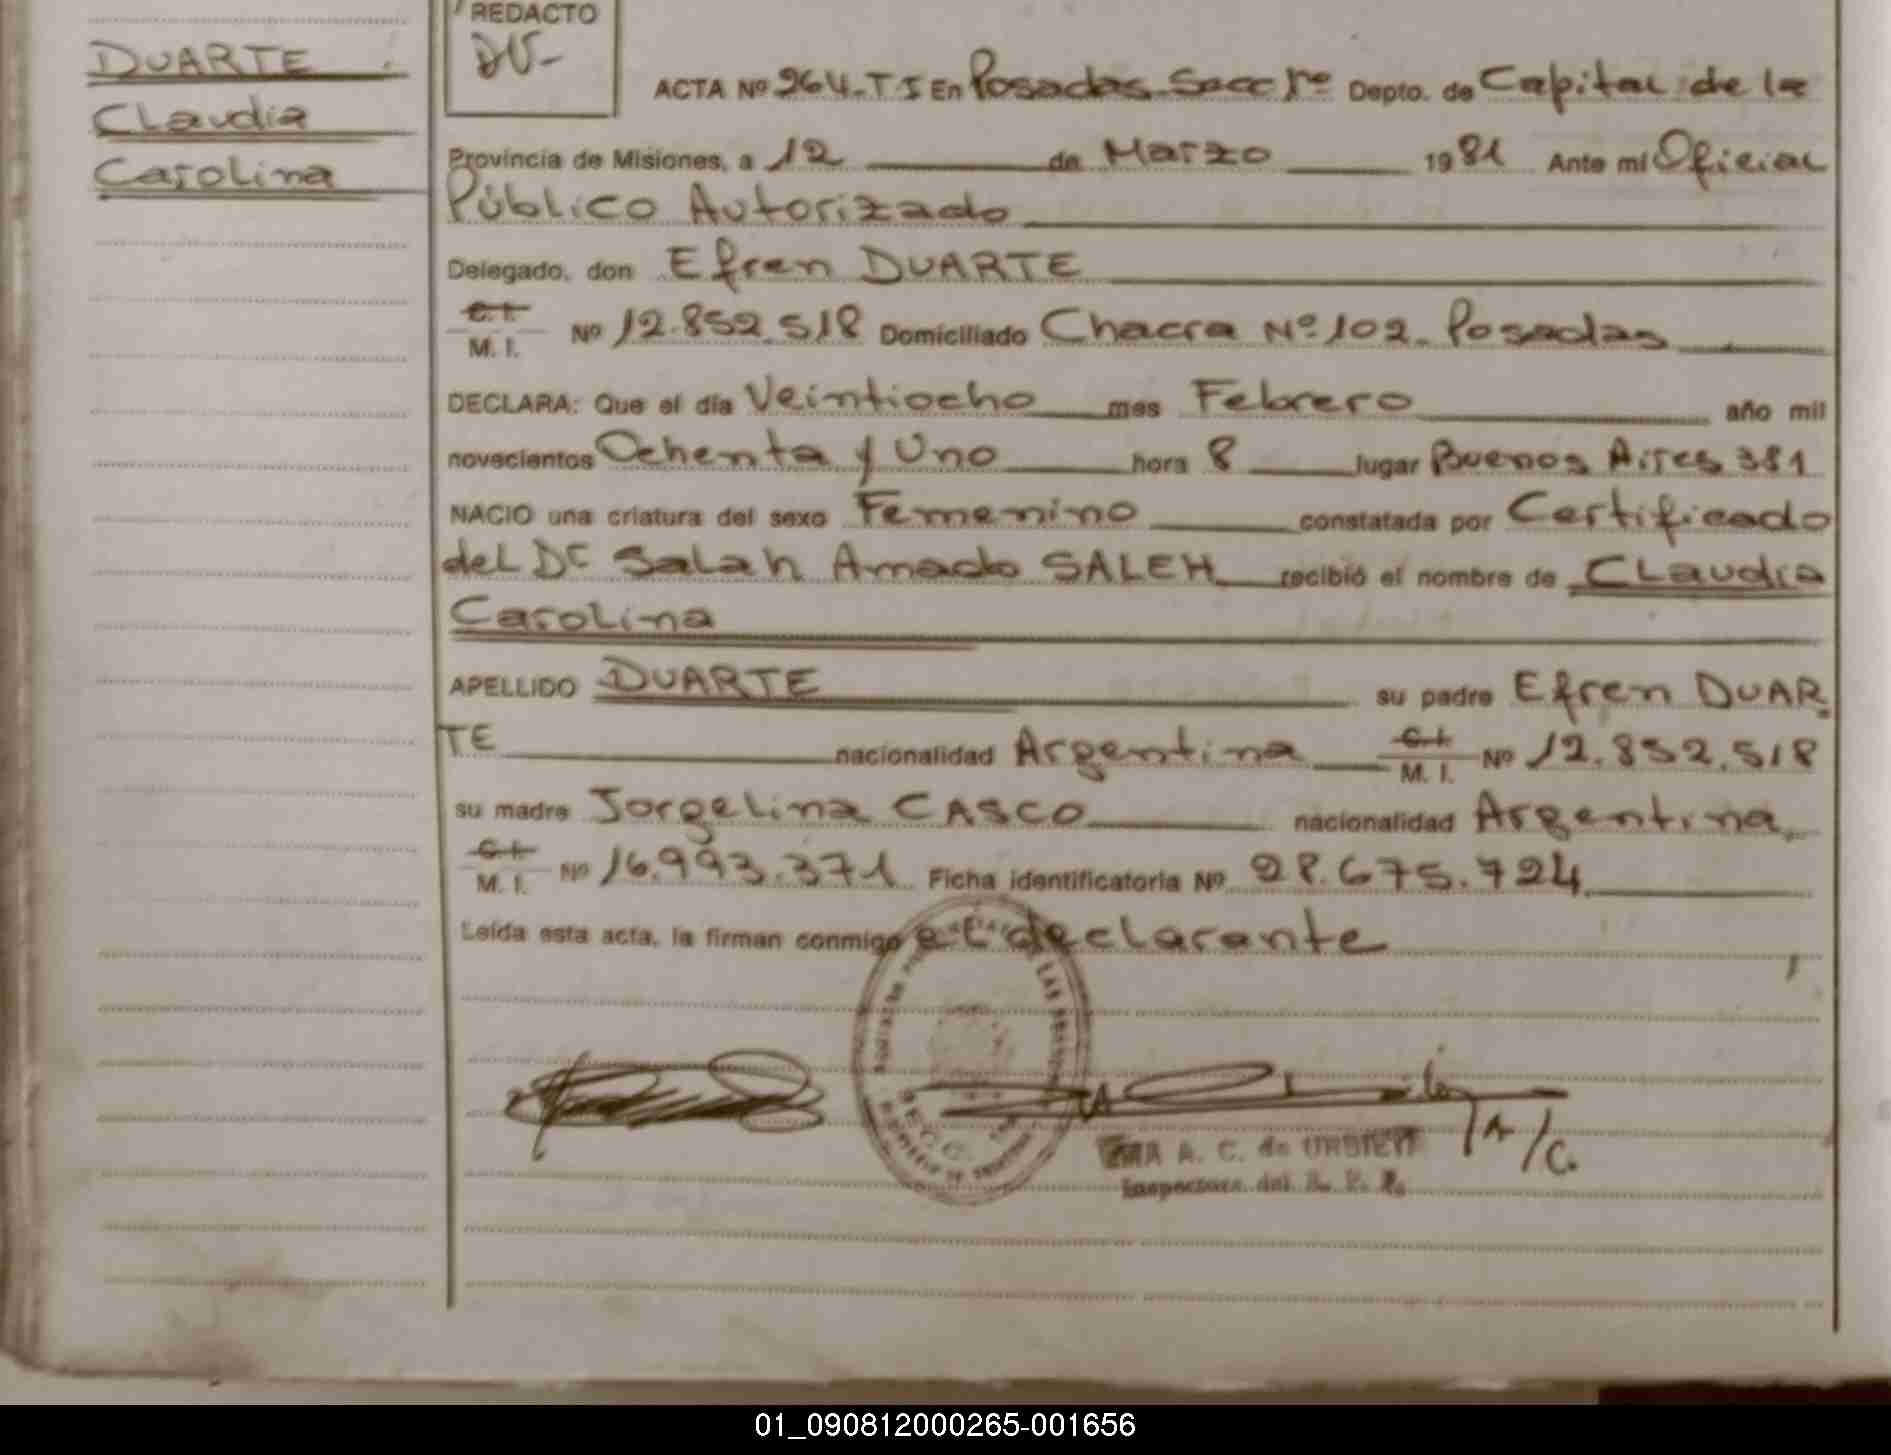 DUARTE
Claudia
Carolina
REDACTO
ACTA Nº 264-T-I En Posadas Secc 1ª Depto. de Capital de la
Provincia de Misiones, a 12 de Marzo 1981 Ante mi Oficial
Público Autorizado
Delegado, don Efren DUARTE
C.I.
M. I. Nº 12.852.518 Domiciliado Chacra Nº 102. Posadas
DECLARA: Que el día Veintiocho mes Febrero año mil
novecientos Ochenta y Uno hora 8 lugar Buenos Aires 381
NACIO una criatura del sexo Femenino constatada por Certificado
del Dr Salah Amado SALEH recibió el nombre de Claudia
Carolina
APELLIDO DUARTE su padre Efren DUAR
TE nacionalidad Argentina C.I. M. I. Nº 12.852.518
su madre Jorgelina CASCO nacionalidad Argentina
C.I.
M. I. Nº 16.993.371 Ficha identificatoria Nº 28.675.724
Leída esta acta, la firman conmigo el declarante
A. C. de
Inspectora del R. P. P.
01_090812000265-001656